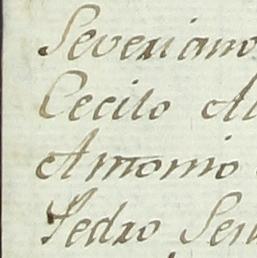 Severiano
Cecilo Al
Antonio
Pedro Ser